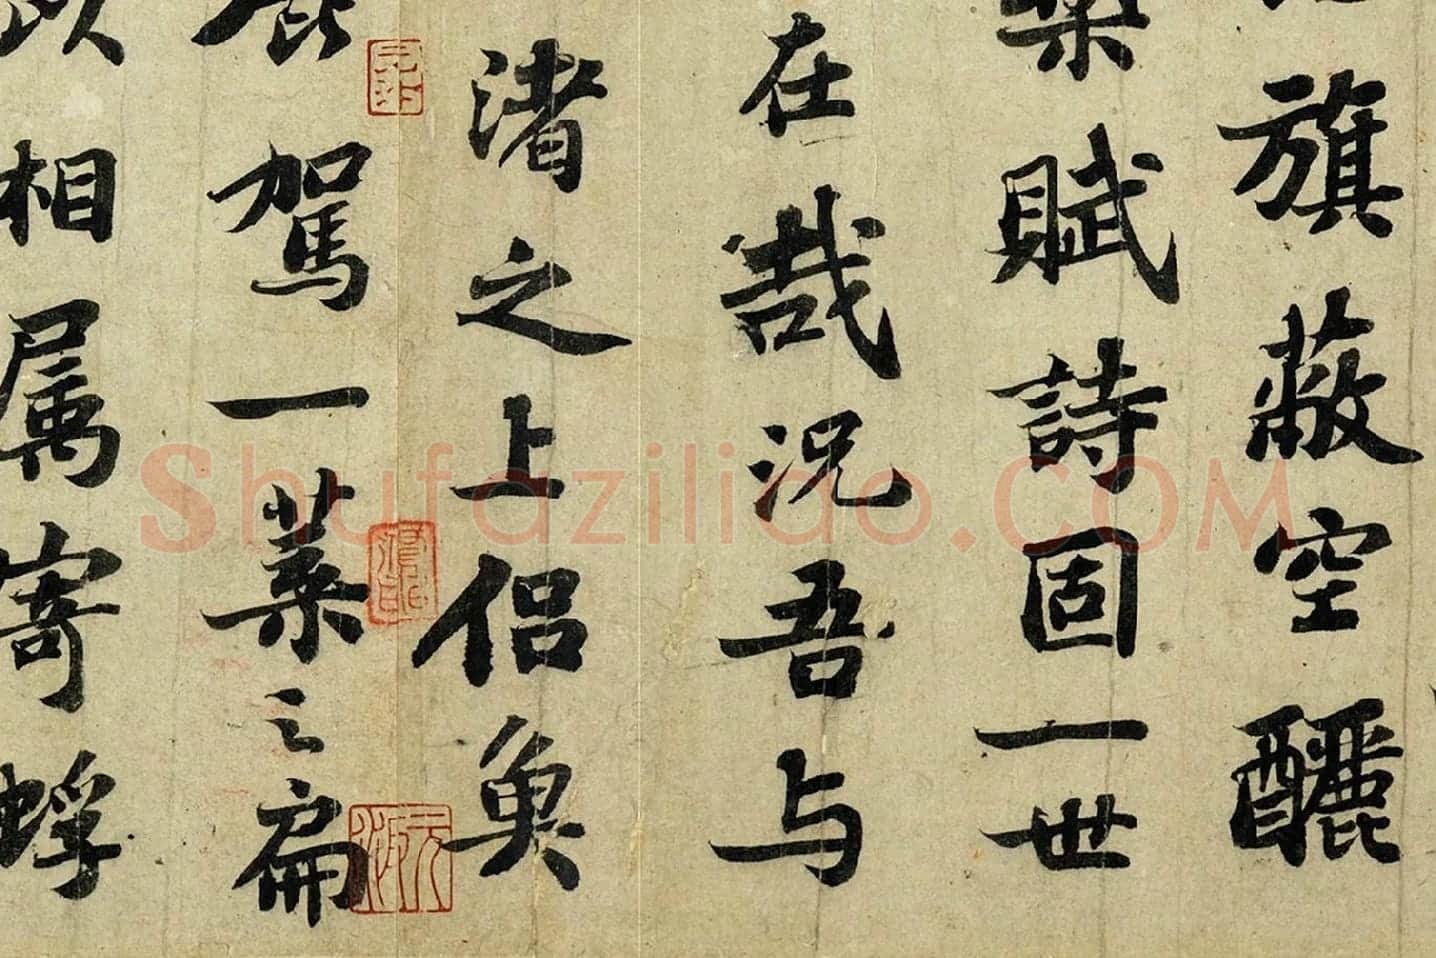 旗蔽空釃
賦詩固一世
在哉況吾与
渚之上侣魚
駕一葉之扁
相属寄蜉
Shufaziliao.COM